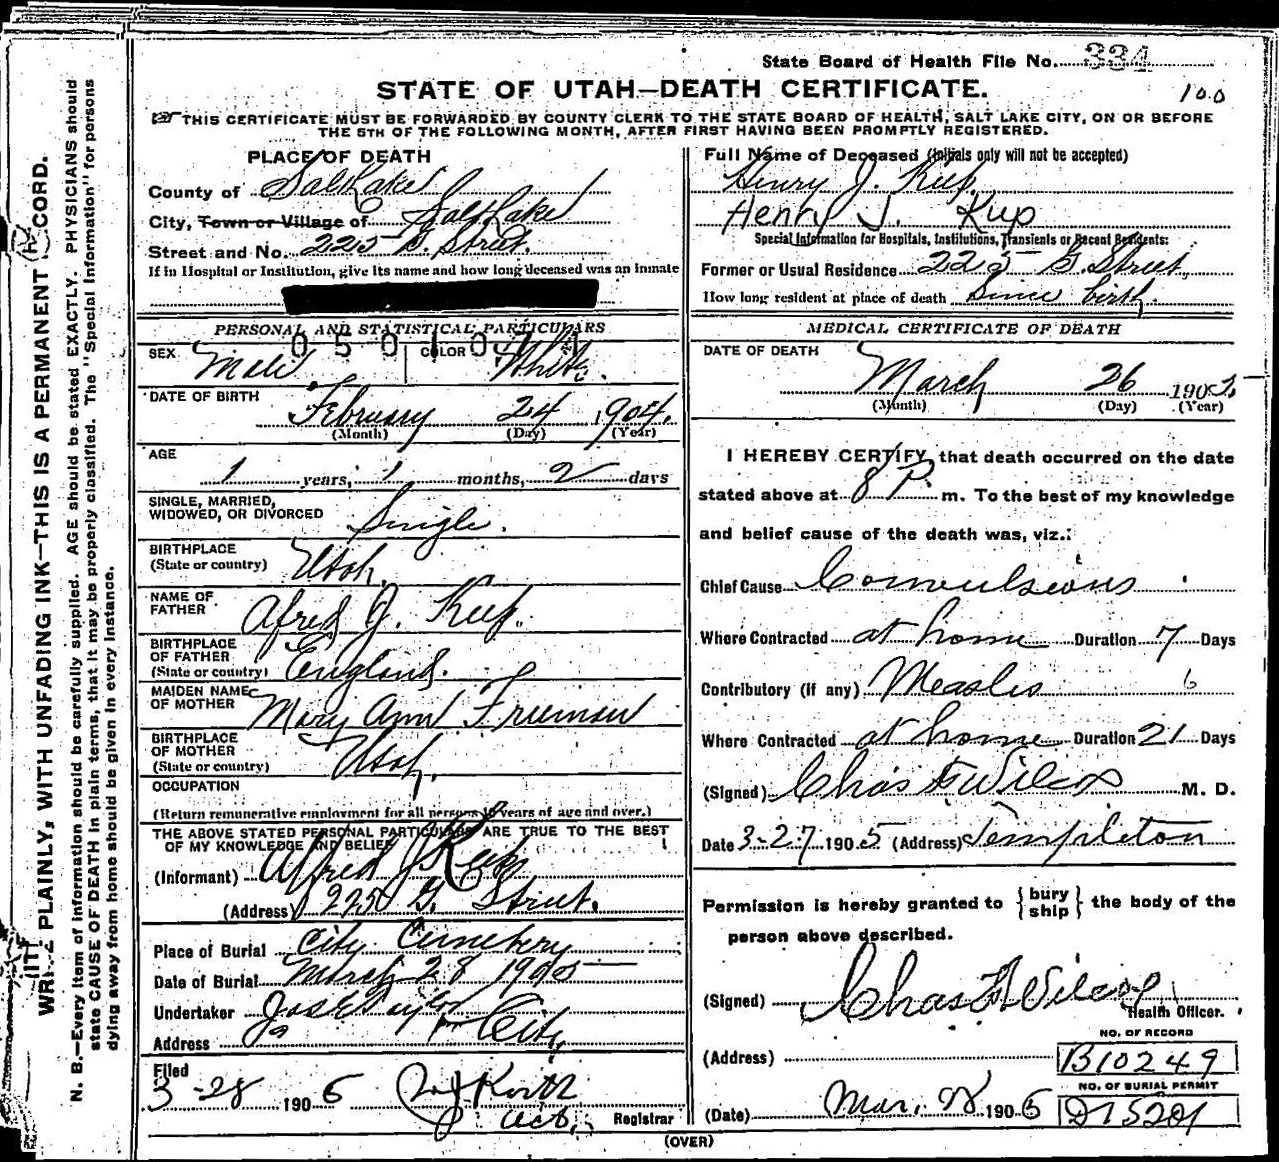 State Board of Health File No. 334
STATE OF UTAH—DEATH CERTIFICATE.
100
THIS CERTIFICATE MUST BE FORWARDED BY COUNTY CLERK TO THE STATE BOARD OF HEALTH, SALT LAKE CITY, ON OR BEFORE
THE 5TH OF THE FOLLOWING MONTH, AFTER FIRST HAVING BEEN PROMPTLY REGISTERED.
PLACE OF DEATH
County of Salt Lake
City, Town or Village of Salt Lake
Street and No. 225 G. Street.
If in Hospital or Institution, give its name and how long deceased was an inmate
PERSONAL AND STATISTICAL PARTICULARS
0501071
SEX Male COLOR White.
DATE OF BIRTH February 24, 1904.
(Month) (Day) (Year)
AGE
1 years, 1 months, 2 days
SINGLE, MARRIED,
WIDOWED, OR DIVORCED Single.
BIRTHPLACE
(State or country) Utah.
NAME OF
FATHER Alfred J. Keep.
BIRTHPLACE
OF FATHER
(State or country) England.
MAIDEN NAME
OF MOTHER Mary Ann Freeman
BIRTHPLACE
OF MOTHER
(State or country) Utah.
OCCUPATION
(Return remunerative employment for all persons 10 years of age and over.)
THE ABOVE STATED PERSONAL PARTICULARS ARE TRUE TO THE BEST
OF MY KNOWLEDGE AND BELIEF
(Informant) Alfred J Keep
(Address) 225 G. Street.
Place of Burial City Cemetery
Date of Burial March 28 1905
Undertaker Jos E Taylor
Address City
Filed
3-28 1905
Act. Registrar
Full Name of Deceased (Initials only will not be accepted)
Henry J. Keep.
Henry J. Kup
Special Information for Hospitals, Institutions, Transients or Recent Residents:
Former or Usual Residence 225 G. Street,
How long resident at place of death Since birth.
MEDICAL CERTIFICATE OF DEATH
DATE OF DEATH
March 26 1905
(Month) (Day) (Year)
I HEREBY CERTIFY, that death occurred on the date
stated above at 8 P. m. To the best of my knowledge
and belief cause of the death was, viz.:
Chief Cause Convulsions
Where Contracted at home Duration 7 Days
Contributory (if any) Measles 6
Where Contracted at home Duration 21 Days
(Signed) Chas F Wilcox M. D.
Date 3-27 1905 (Address) Templeton
Permission is hereby granted to { bury
ship } the body of the
person above described.
(Signed) Chas F Wilcox
Health Officer.
NO. OF RECORD
(Address) B10249
NO. OF BURIAL PERMIT
(Date) Mar. 28 1905 D15201
(OVER)
WRITE PLAINLY, WITH UNFADING INK—THIS IS A PERMANENT RECORD.
N. B.—Every item of information should be carefully supplied. AGE should be stated EXACTLY. PHYSICIANS should
state CAUSE OF DEATH in plain terms, that it may be properly classified. The "Special Information" for persons
dying away from home should be given in every instance.